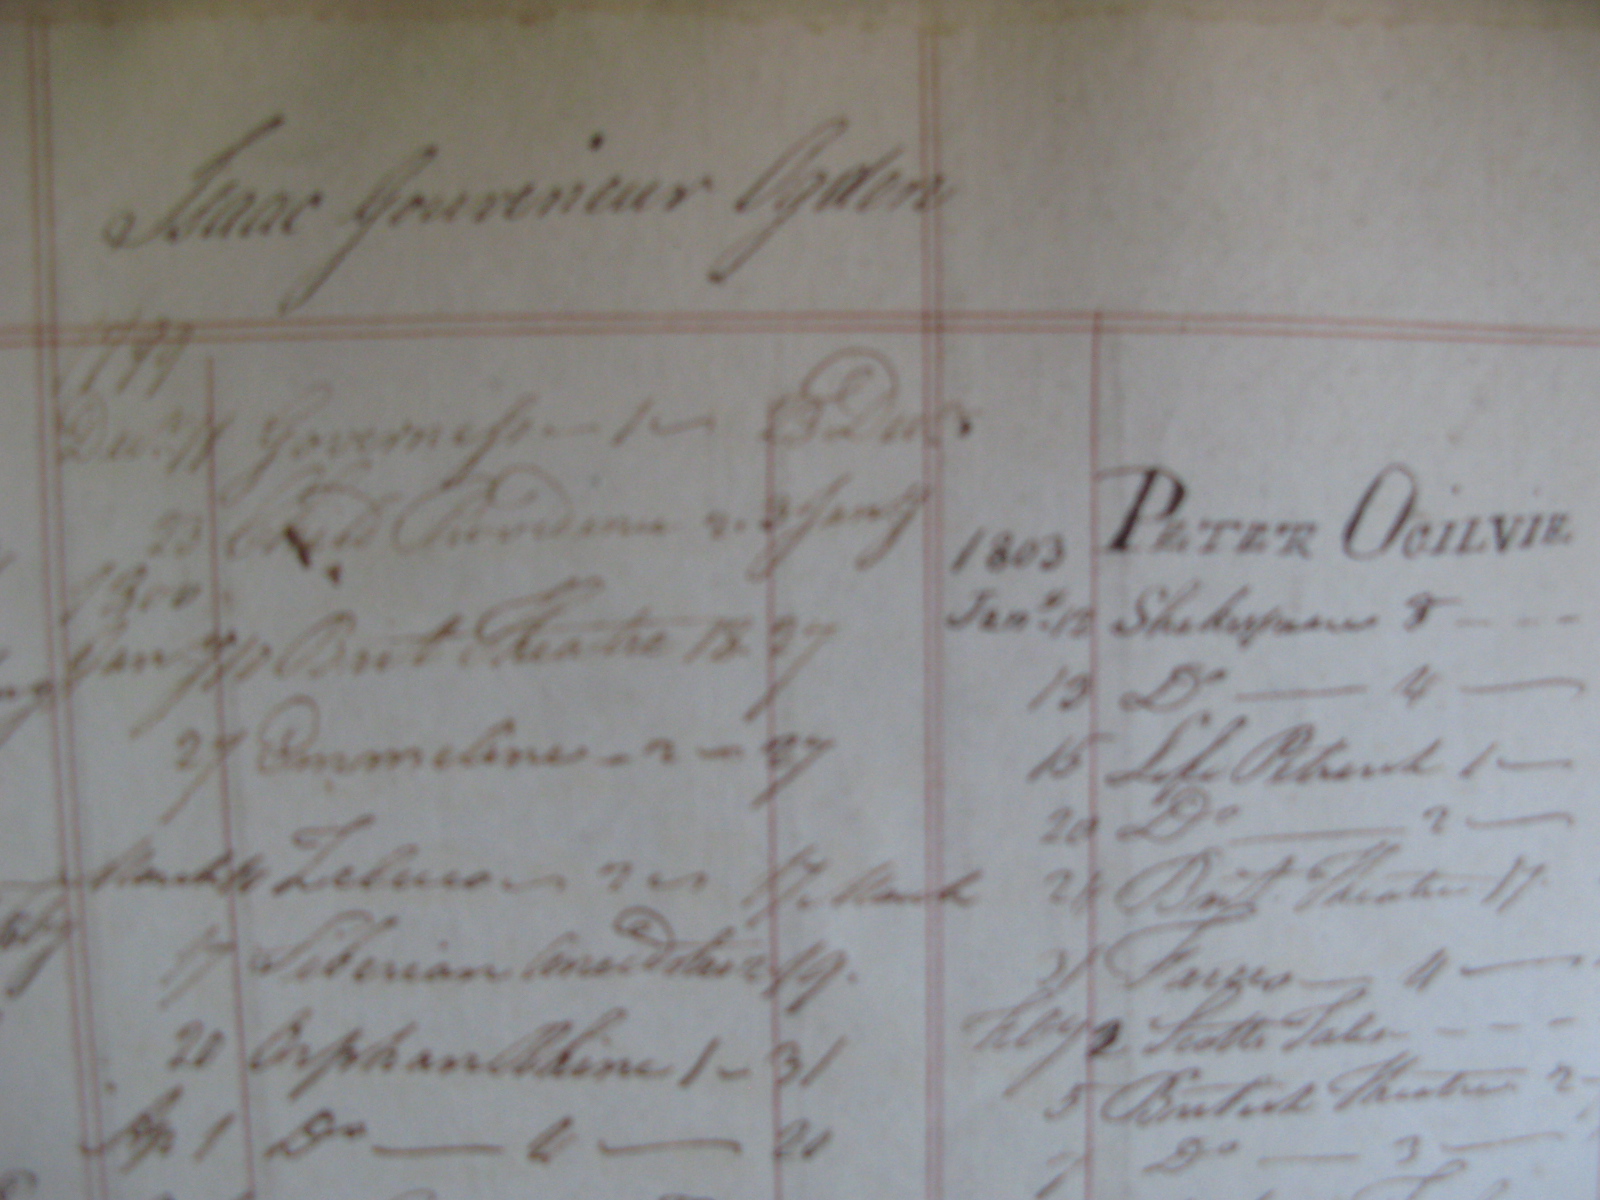 Isaac Gouveneur Ogden
1799
Decr. 11 Governess — 1 — 23 Decr.
23 Providence 2. 3 Jany
1800
Jany 10 Brit Theatre 18. 27
27 Emmeline — 2 — 27
March 14 Zeluco — 2 — 17. March
17 Siberian Anecdotes 19.
20 Orphan Rhine 1 — 31
Ap. 1 Do — 4 — 20
1803 PETER OGILVIE
Jany. 12 Shakespeare 8 - - -
13 Do — 4 —
15 Life Petrarch 1 —
20 Do — 2 —
21 Brit. Theatre 17.
31 4 —
Feby 2 Scotts Tales - - -
5 British Theatre 2 -
7 Do — 3 —